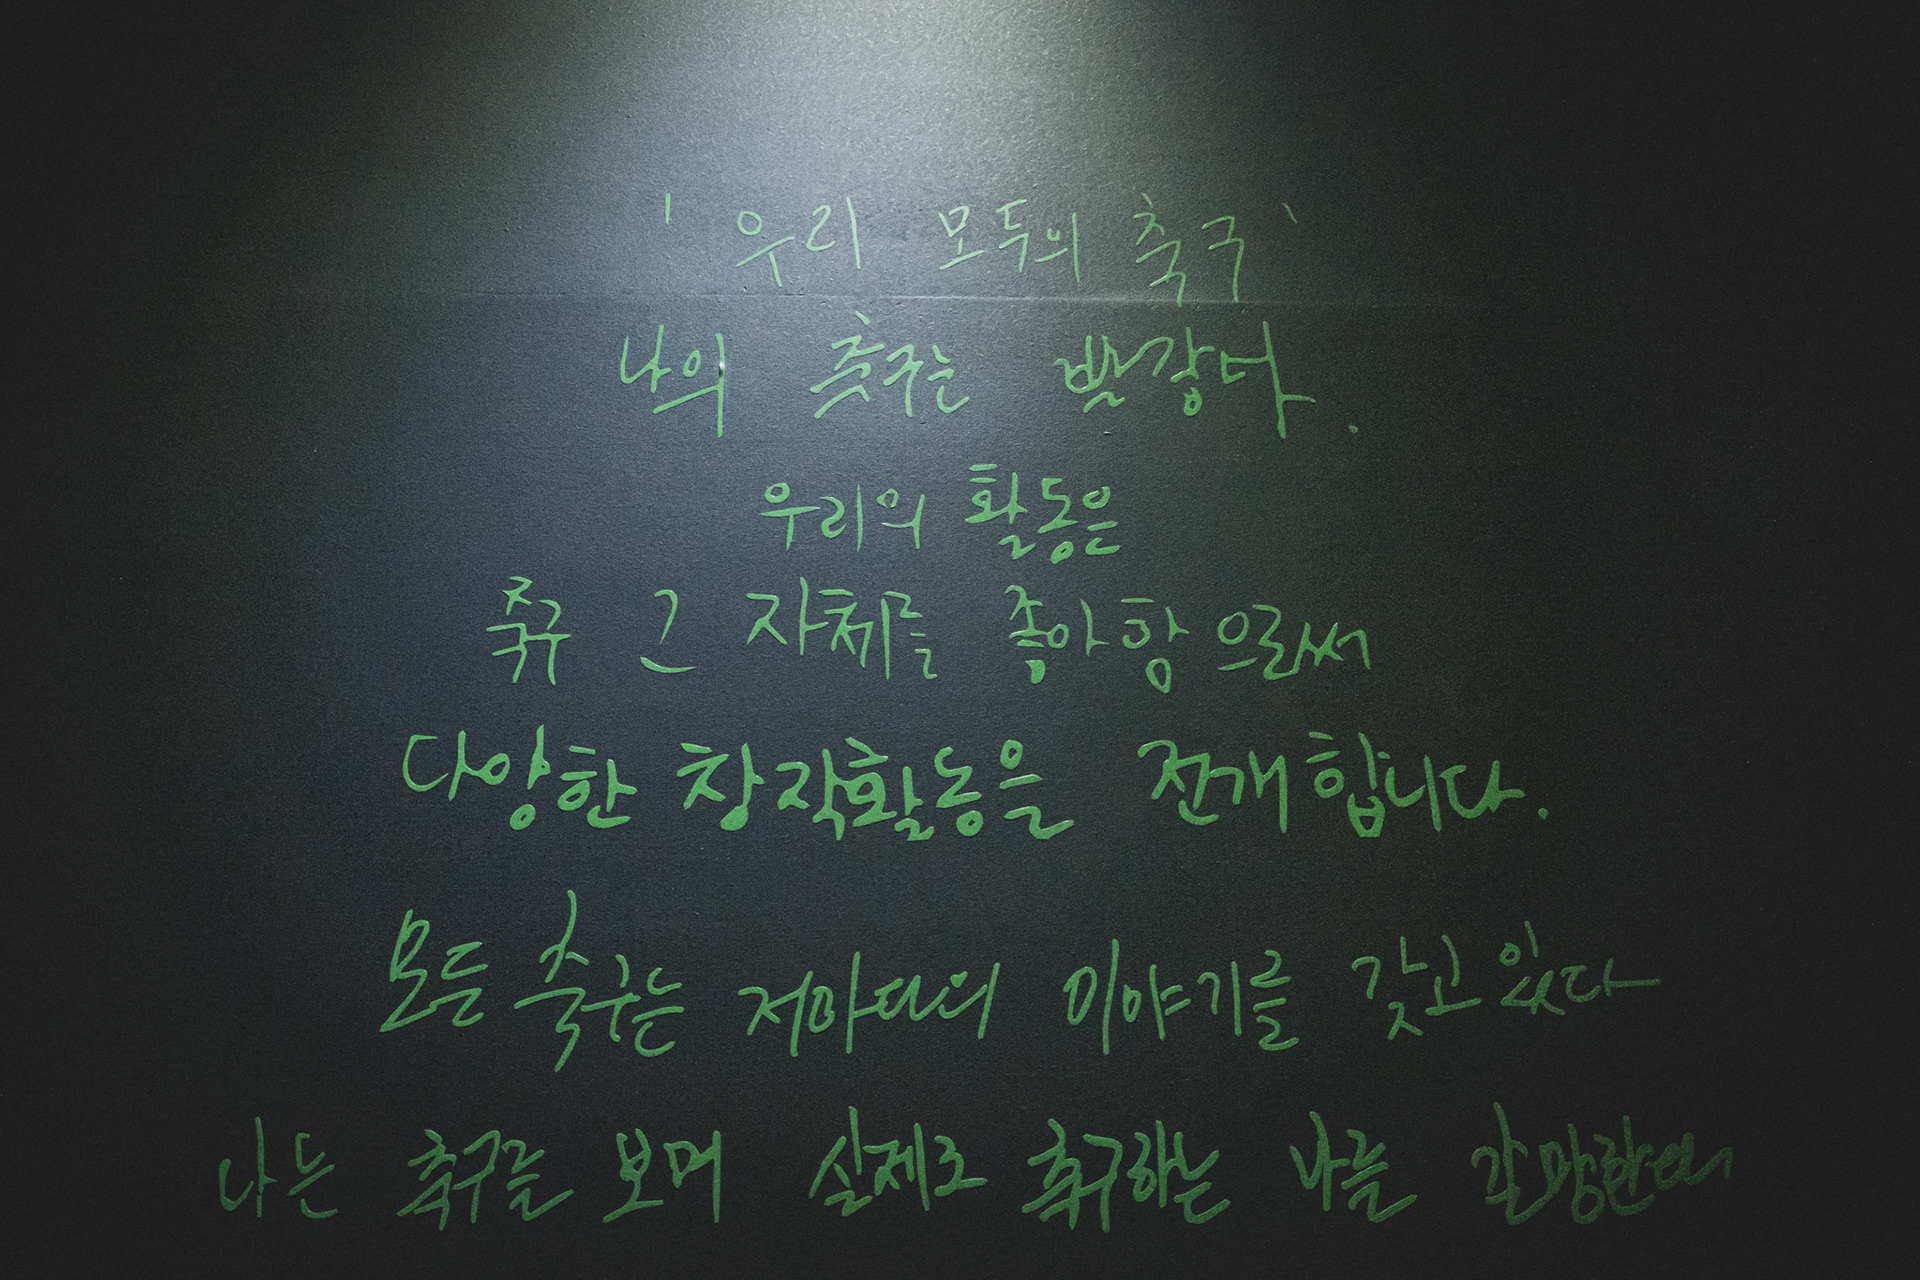 ' 우리 모두의 축구 '
나의 축구는 빨갛다.
우리의 활동은
축구 그 자체를 좋아함으로써
다양한 창작활동을 전개합니다.
모든 축구는 저마다의 이야기를 갖고 있다
나는 축구를 보며 실제로 축구하는 나를 갈망한다